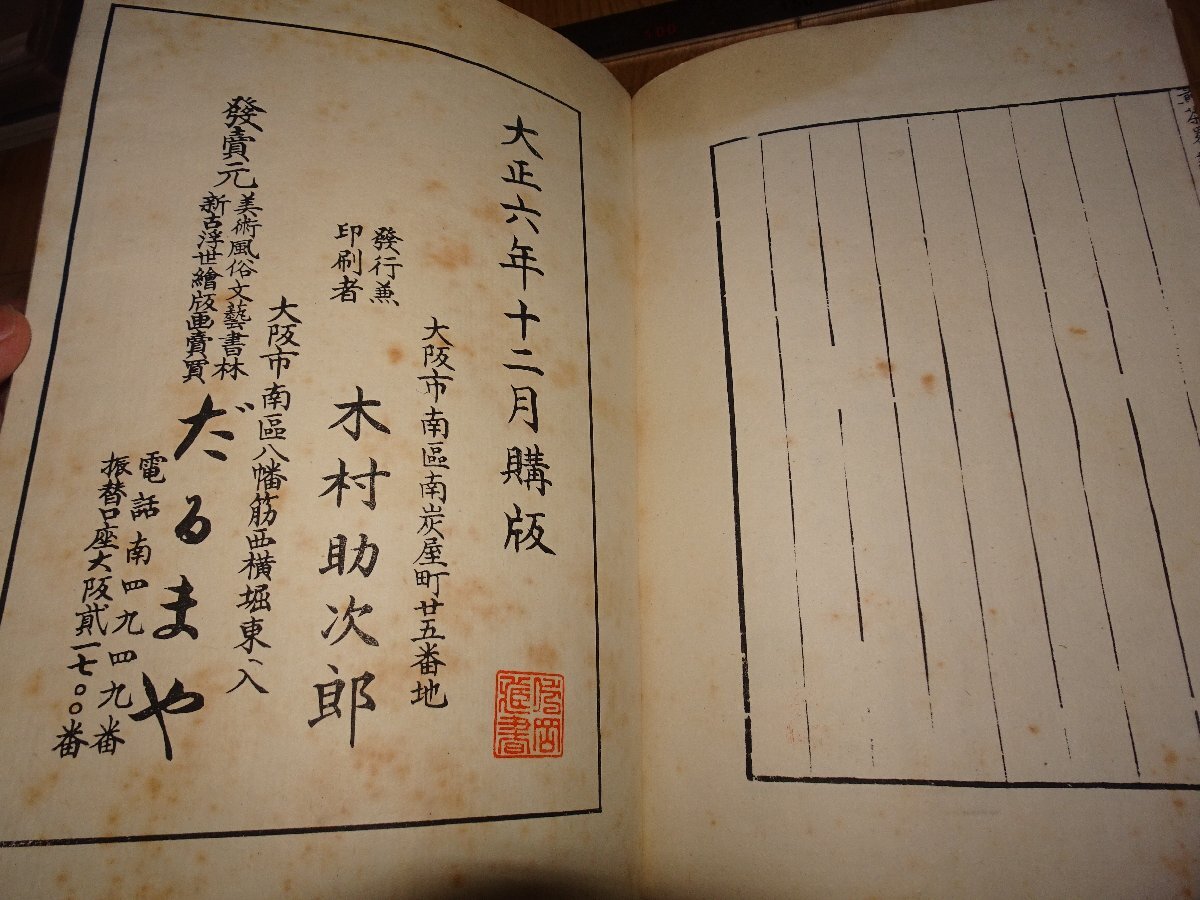 大正六年十二月購版
大阪市南區南炭屋町廿五番地
發行兼
印刷者
木村助次郎
大阪市南區八幡筋西横堀東入
發賣元
美術風俗文藝書林
新古浮世繪版画賣買
だるまや
電話南四九四九番
振替口座大阪貳一七〇〇番